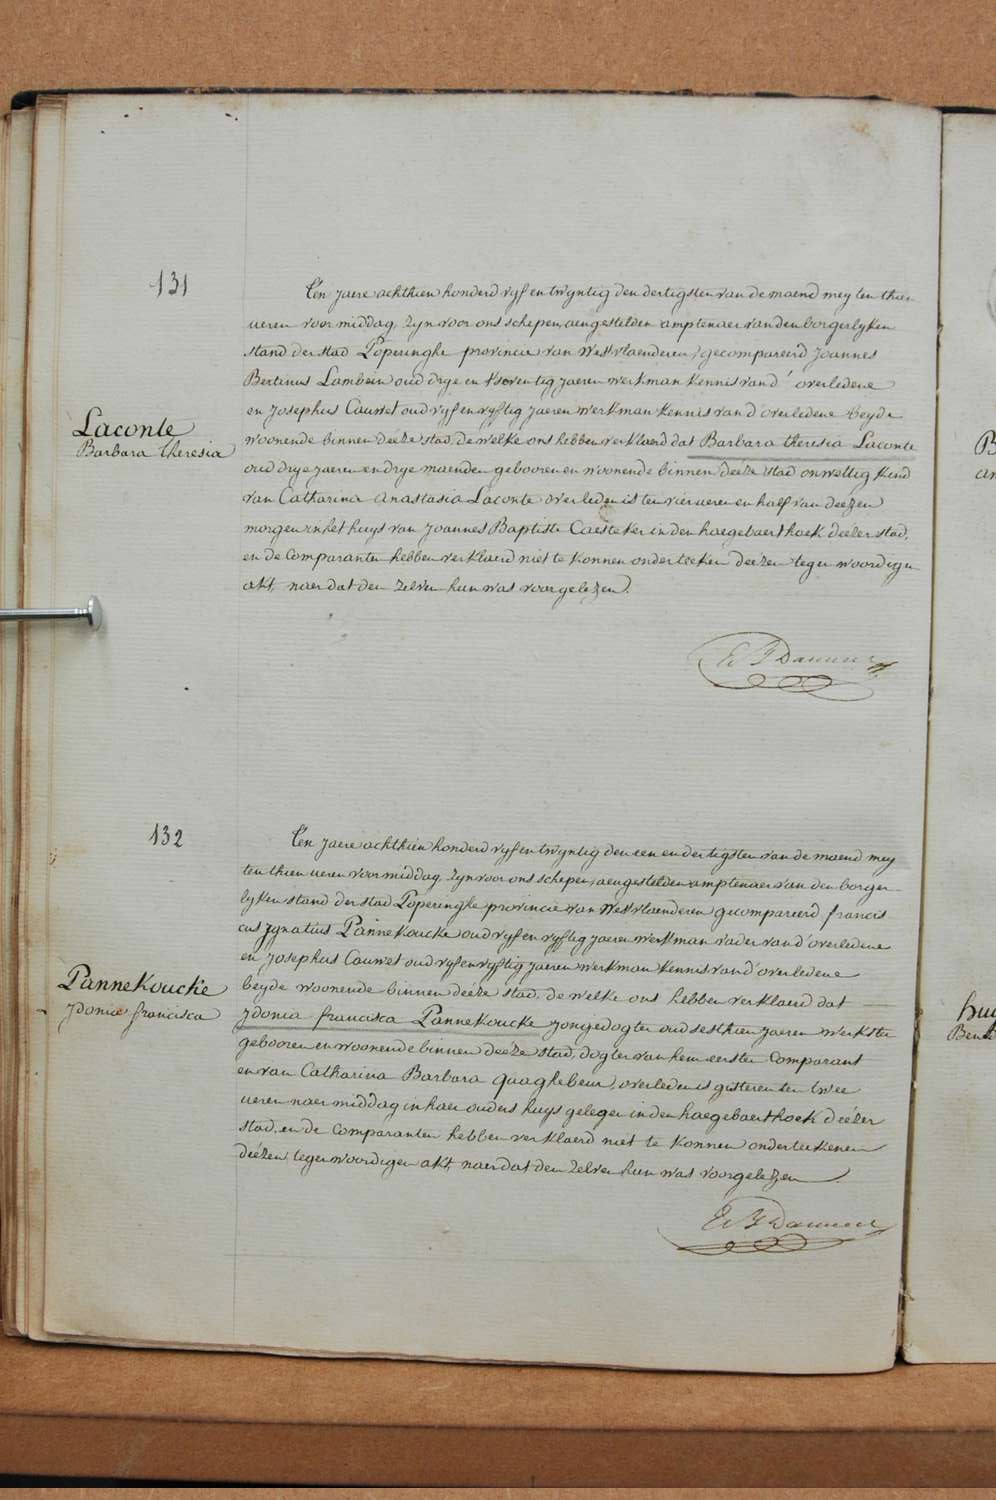 131
Ten jaere achthien honderd vyf en twyntig den dertigsten van de maend mey ten thien
ueren voor middag, zyn voor ons schepen, aengestelden amptenaer van den borgerlyken
stand der stad Poperinghe provincie van Westvlaenderen, gecompareerd Joannes
Bertinus Lambein oud drye en seventig jaeren werkman kennis van d'overledene
en Josephus Cauwet oud vyf en vyftig jaeren werkman kennis van d'overledene beyde
Laconte
Barbara theresia
woonende binnen deéze stad, de welke ons hebben verklaerd dat Barbara theresia Laconte
oud drye jaeren en drye maenden gebooren en woonende binnen deéze stad onwettig kind
van Catharina anastasia Laconte overleden is ten vier ueren en half van deézen
morgen in het huys van Joannes Baptiste Caesteker in den haegebaerthoek deézer stad,
en de Comparanten hebben verklaerd niet te konnen onderteeken deézen tegenwoordigen
akt, naer dat den zelven hun was voorgelezen.
132
Ten jaere achthien honderd vyf en twyntig den een en dertigsten van de maend mey
ten thien ueren voor middag, zyn voor ons schepen, aengestelden amptenaer van den borger-
lyken stand der stad Poperinghe provincie van Westvlaenderen gecompareerd francis
cus Jgnatius Pannekoucke oud vyf en vyftig jaeren werkman vader van d'overledene
en Josephus Cauwet oud vyf en vyftig jaeren werkman kennis van d'overledene
Pannekoucke
Jdonia francisca
beyde woonende binnen deéze stad, de welke ons hebben verklaerd dat
Jdonia francisca Pannekoucke jongedogter oud sesthien jaeren werkster
gebooren en woonende binnen deéze stad, dogter van hem eersten Comparant
en van Catharina Barbara Quaghebeur, overleden is gisteren ten twee
ueren naer middag in haer ouders huys gelegen in den haegebaerthoek deézer
stad, en de Comparanten hebben verklaerd niet te konnen onderteekenen
deézen tegenwoordigen akt, naer dat den zelven hun was voorgelezen